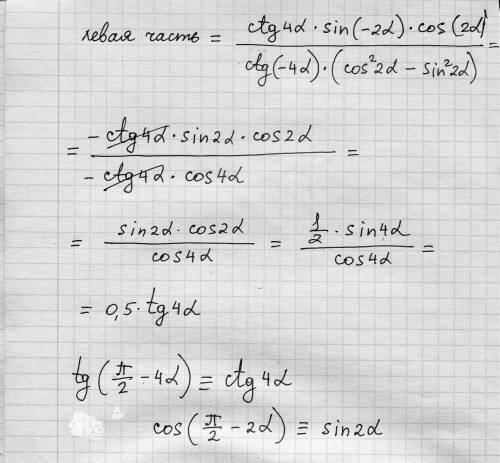 левая часть = ctg4α · sin(-2α) · cos(2α) / ctg(-4α) · (cos²2α - sin²2α) =
= -ctg4α · sin2α · cos2α / -ctg4α · cos4α =
= sin2α · cos2α / cos4α = 1/2 · sin4α / cos4α =
= 0,5 · tg4α
tg(π/2 - 4α) ≡ ctg4α
cos(π/2 - 2α) ≡ sin2α